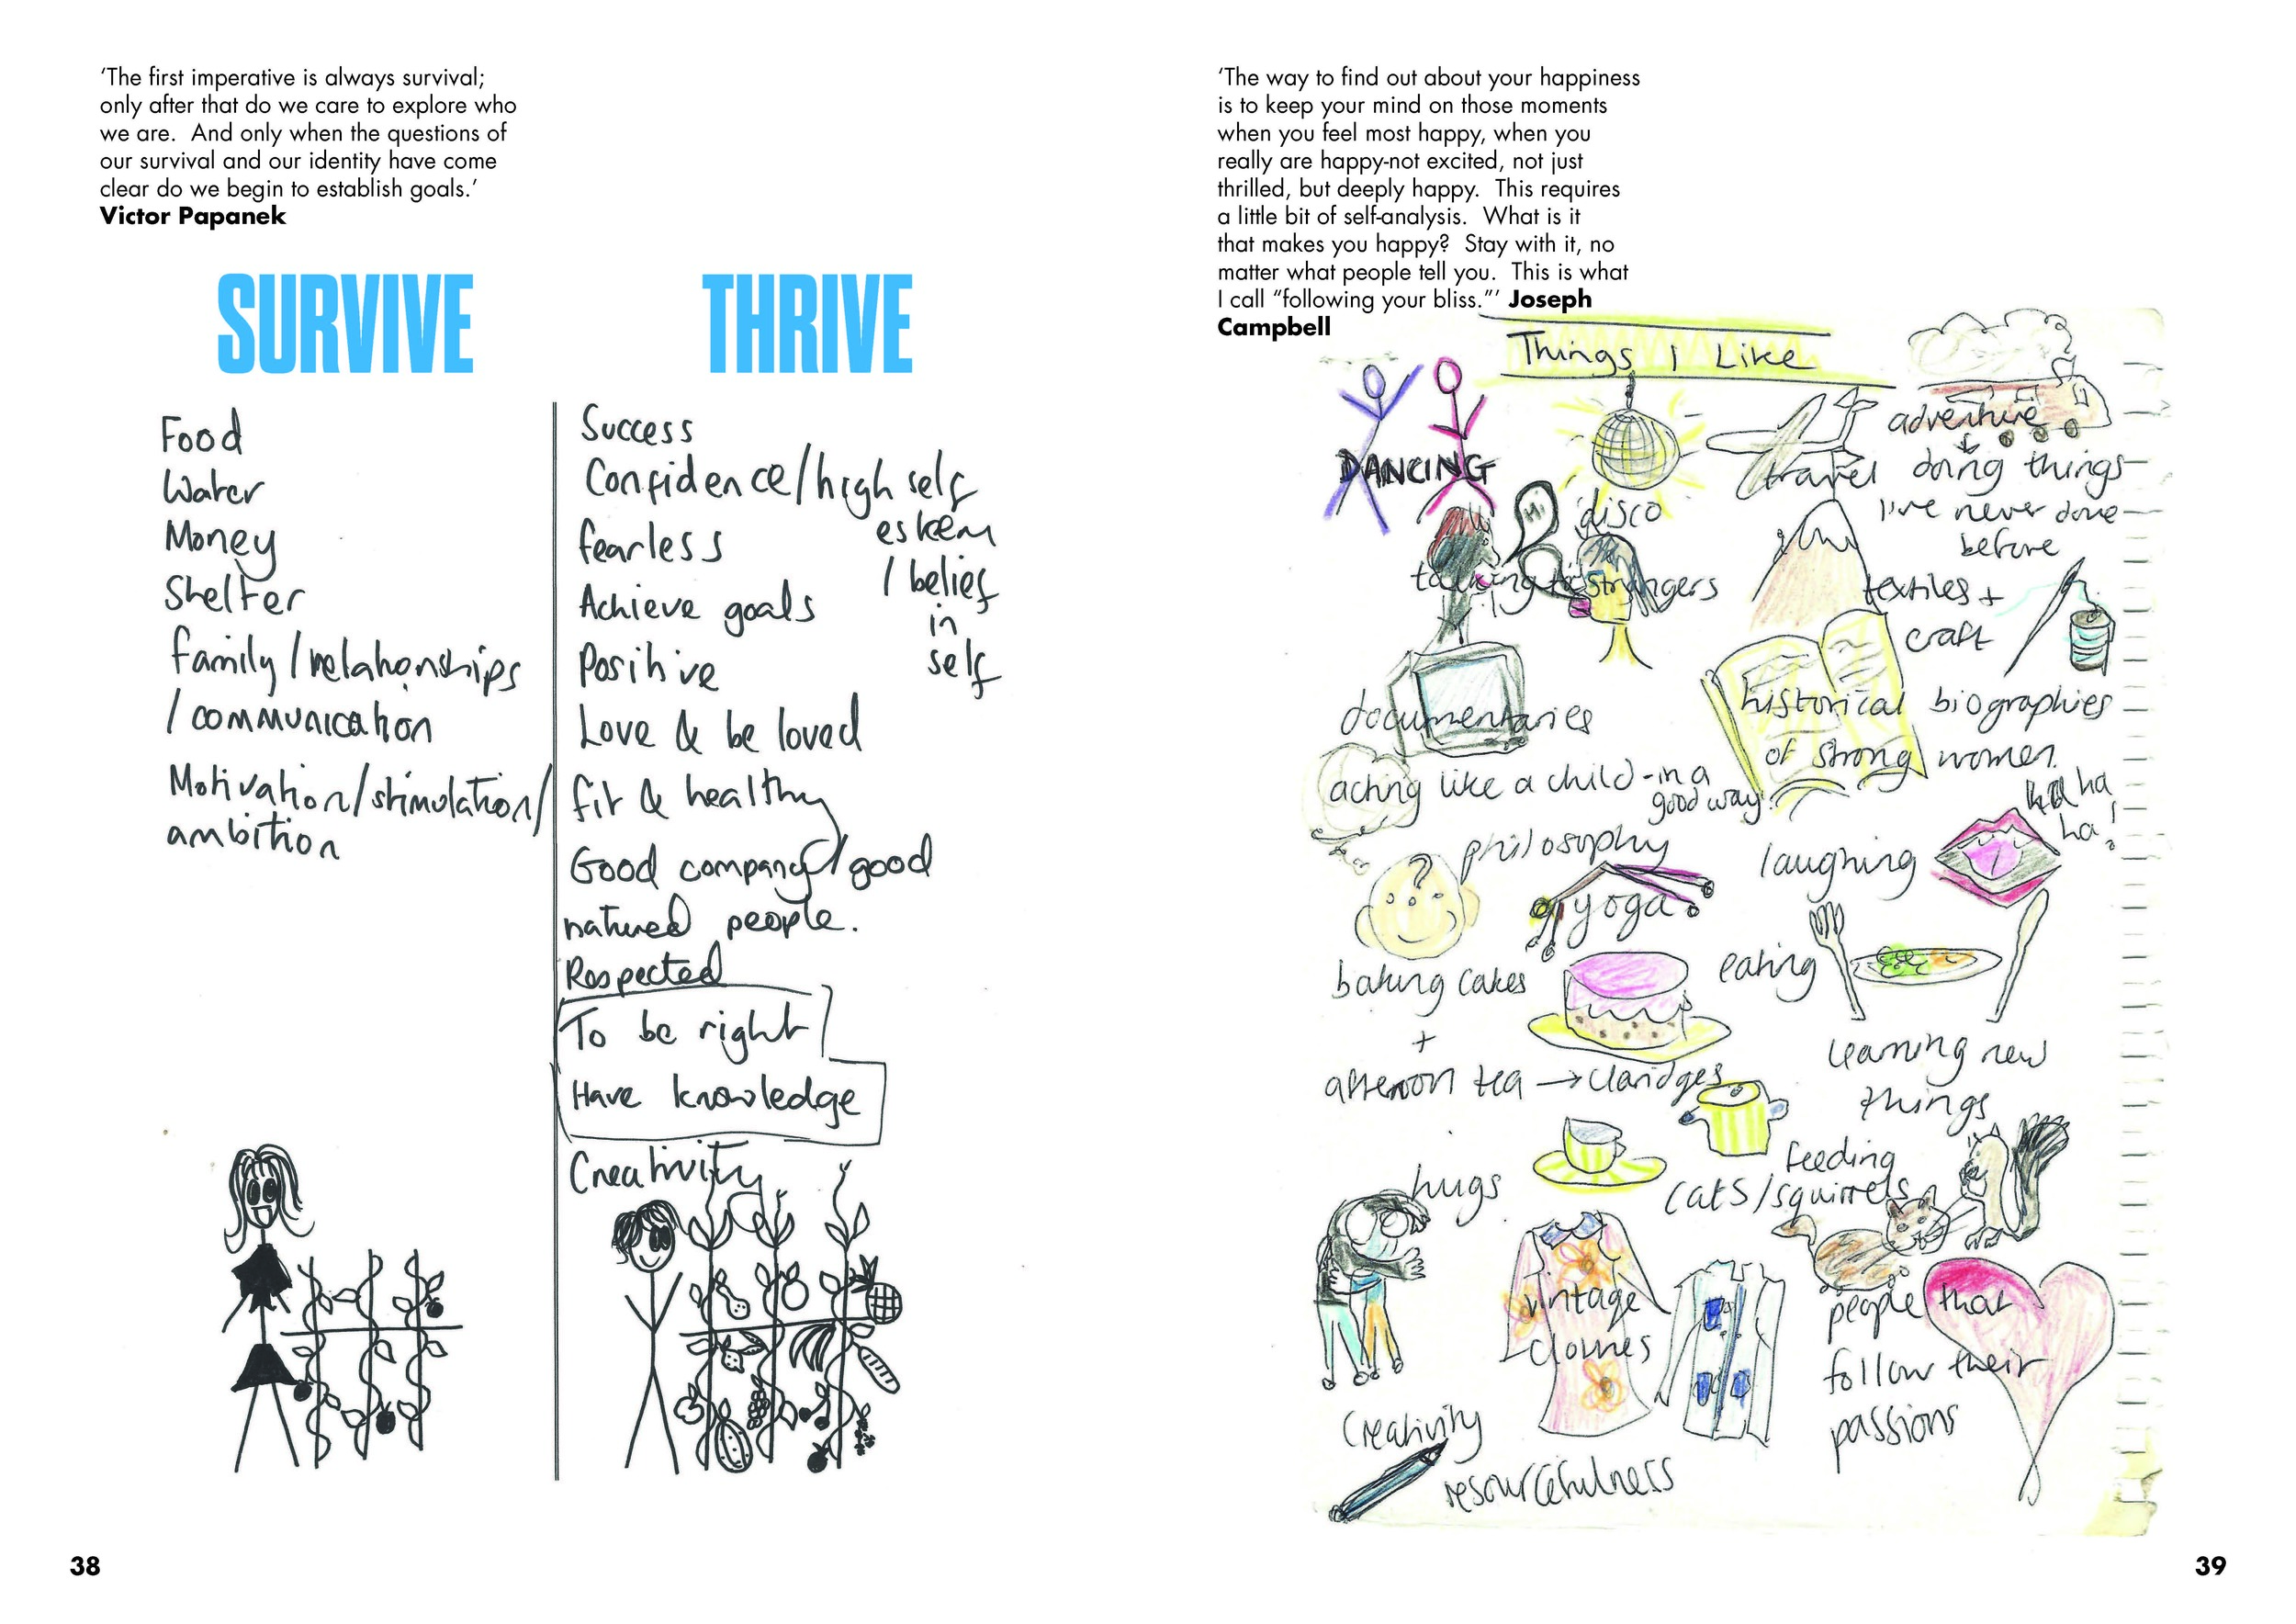 ‘The first imperative is always survival;
only after that do we care to explore who
we are.  And only when the questions of
our survival and our identity have come
clear do we begin to establish goals.’
Victor Papanek
SURVIVE
Food
Water
Money
Shelter
family / relationships
/ communication
Motivation/stimulation/
ambition
THRIVE
Success
Confidence/high self
esteem
/ belief
in
self
fearless
Achieve goals
Positive
Love & be loved
fit & healthy
Good company / good
natured people.
Respected
To be right
Have knowledge
Creativity
38
‘The way to find out about your happiness
is to keep your mind on those moments
when you feel most happy, when you
really are happy-not excited, not just
thrilled, but deeply happy.  This requires
a little bit of self-analysis.  What is it
that makes you happy?  Stay with it, no
matter what people tell you.  This is what
I call “following your bliss.”’ Joseph
Campbell
Things I Like
DANCING
disco
travel
adventure
doing things
I've never done
before
Hi
talking to strangers
textiles +
craft
documentaries
historical biographies
of strong women.
acting like a child - in a
good way!
philosophy
?
laughing
ha ha
ha!
yoga
baking cakes
+
afternoon tea → claridges
eating
learning new
things
hugs
feeding
cats/squirrels
vintage
clothes
people that
follow their
passions
Creativity
resourcefulness
39